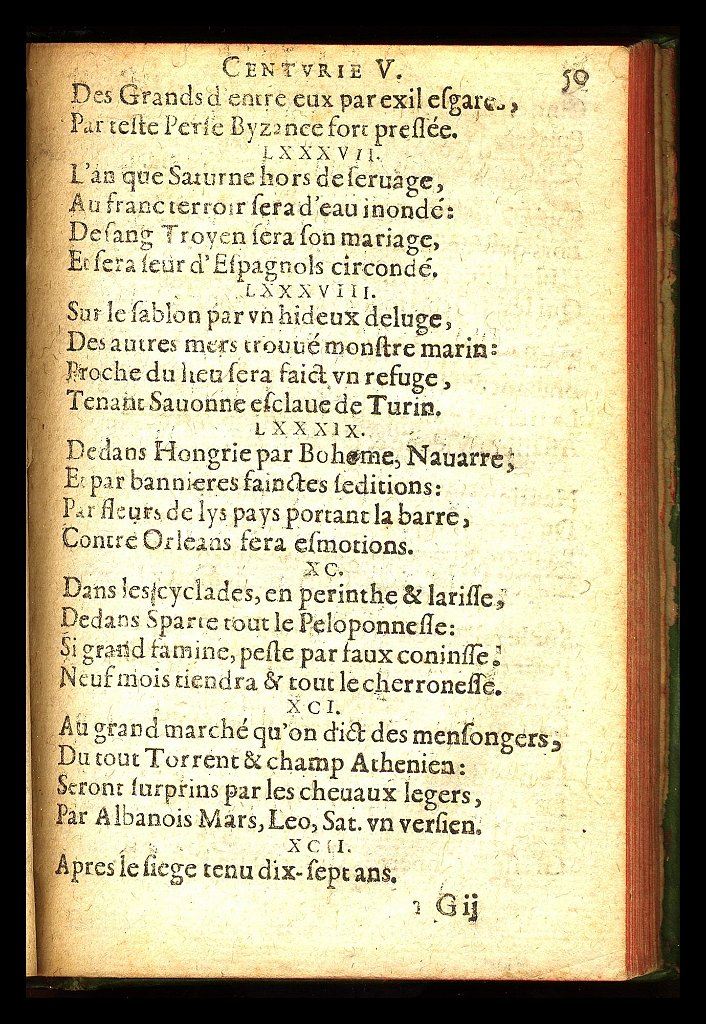 CENTVRIE V. 50
Des Grands d'entre eux par exil eſgarez,
Par teſte Perſe Byzance fort preſſée.
LXXXVII.
L'an que Saturne hors de ſeruage,
Au franc terroir ſera d'eau inondé:
De ſang Troyen ſera ſon mariage,
Et ſera ſeur d'Eſpagnols circondé.
LXXXVIII.
Sur le ſablon par vn hideux deluge,
Des autres mers trouué monſtre marin:
Proche du lieu ſera faict vn refuge,
Tenant Sauonne eſclaue de Turin.
LXXXIX.
Dedans Hongrie par Boheme, Nauarre,
Et par bannieres fainctes ſeditions:
Par fleurs de lys pays portant la barre,
Contre Orleans fera eſmotions.
XC.
Dans les cyclades, en perinthe & lariſſe,
Dedans Sparte tout le Peloponneſſe:
Si grand famine, peſte par faux coninſſe,
Neuf mois tiendra & tout le cherroneſſe.
XCI.
Au grand marché qu'on dict des menſongers,
Du tout Torrent & champ Athenien:
Seront ſurprins par les cheuaux legers,
Par Albanois Mars, Leo, Sat. vn verſien.
XCII.
Apres le ſiege tenu dix-ſept ans.
G ij